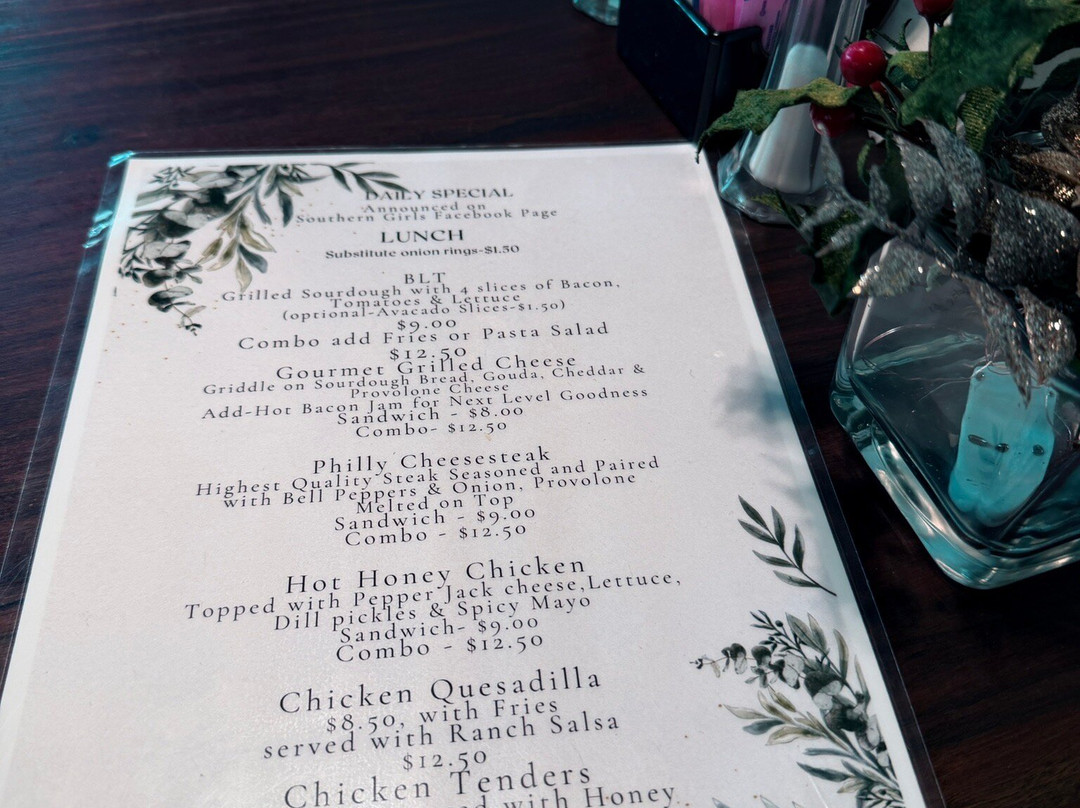 DAILY SPECIAL
Announced on
Southern Girls Facebook Page
LUNCH
Substitute onion rings-$1.50
BLT
Grilled Sourdough with 4 slices of Bacon,
Tomatoes & Lettuce
(optional-Avacado Slices-$1.50)
$9.00
Combo add Fries or Pasta Salad
$12.50
Gourmet Grilled Cheese
Griddle on Sourdough Bread, Gouda, Cheddar &
Provolone Cheese
Add-Hot Bacon Jam for Next Level Goodness
Sandwich - $8.00
Combo- $12.50
Philly Cheesesteak
Highest Quality Steak Seasoned and Paired
with Bell Peppers & Onion, Provolone
Melted on Top
Sandwich - $9.00
Combo - $12.50
Hot Honey Chicken
Topped with Pepper Jack cheese,Lettuce,
Dill pickles & Spicy Mayo
Sandwich- $9.00
Combo - $12.50
Chicken Quesadilla
$8.50, with Fries
served with Ranch Salsa
$12.50
Chicken Tenders
with Honey